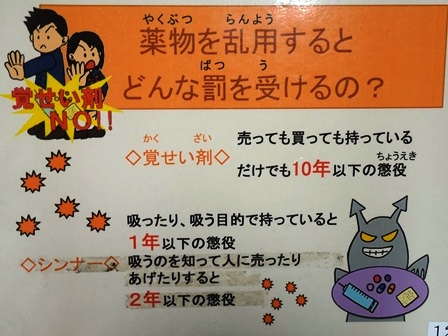 やくぶつ らんよう
薬物を乱用すると
ばつ う
どんな罰を受けるの？
覚せい剤
NO!!
かく ざい
◇覚せい剤◇
売っても買っても持っている
ちょうえき
だけでも10年以下の懲役
吸ったり、吸う目的で持っていると
1年以下の懲役
◇シンナー◇
吸うのを知って人に売ったり
あげたりすると
2年以下の懲役